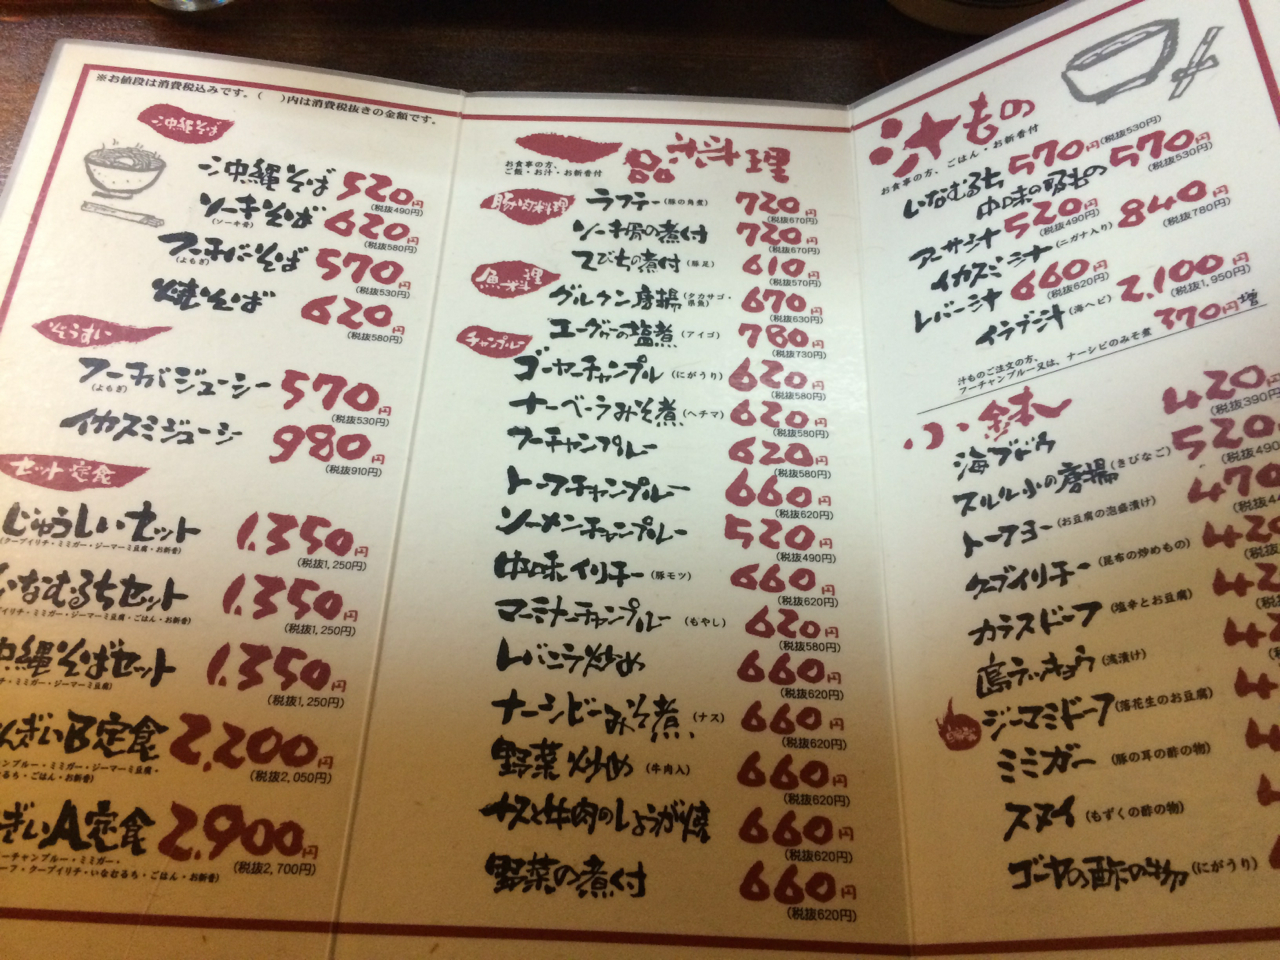 ※お値段は消費税込みです。(　)内は消費税抜きの金額です。
沖縄そば
沖縄そば 520円
(税抜490円)
ソーキそば 620円
(ソーキ骨) (税抜580円)
フーチバーそば 570円
(よもぎ) (税抜530円)
焼そば 620円
(税抜580円)
ぞうすい
フーチバジューシー 570円
(よもぎ) (税抜530円)
イカスミジューシー 980円
(税抜910円)
セット定食
じゅうしいセット 1,350円
(クーブイリチ・ミミガー・ジーマーミ豆腐・お新香) (税抜1,250円)
いなむるちセット 1,350円
ブイリチ・ミミガー・ジーマーミ豆腐・ごはん・お新香) (税抜1,250円)
沖縄そばセット 1,350円
チ・ミミガー・ジーマーミ豆腐) (税抜1,250円)
んぎいB定食 2,200円
ンプルー・ミミガー・ジーマーミ豆腐・
むるち・ごはん・お新香) (税抜2,050円)
ぎいA定食 2,900円
ーチャンプルー・ミミガー・
ーフ・クーブイリチ・いなむるち・ごはん・お新香) (税抜2,700円)
一品料理
お食事の方、
ご飯・お汁・お新香付
豚肉料理
ラフテー(豚の角煮) 720円
(税抜670円)
ソーキ骨の煮付 720円
(税抜670円)
てびちの煮付(豚足) 610円
(税抜570円)
魚料理
グルクン唐揚(タカサゴ・県魚) 670円
(税抜630円)
エーグヮーの塩煮(アイゴ) 780円
(税抜730円)
チャンプルー
ゴーヤーチャンプル(にがうり) 620円
(税抜580円)
ナーベーラみそ煮(ヘチマ) 620円
(税抜580円)
フーチャンプルー 620円
(税抜580円)
トーフチャンプルー 660円
(税抜620円)
ソーメンチャンプルー 520円
(税抜490円)
中味イリチー(豚モツ) 660円
(税抜620円)
マーミナーチャンプルー(もやし) 620円
(税抜580円)
レバニラ炒め 660円
(税抜620円)
ナーシビーみそ煮(ナス) 660円
(税抜620円)
野菜炒め(牛肉入) 660円
(税抜620円)
ナスと牛肉のしょうが焼 660円
(税抜620円)
野菜の煮付 660円
(税抜620円)
汁もの
お食事の方、ごはん・お新香付
いなむるち 570円(税抜530円)
中味の吸もの 570円
(税抜530円)
アーサ汁 520円
(税抜490円)
イカスミ汁(ニガナ入り) 840円
(税抜780円)
レバー汁 660円
(税抜620円)
イラブ汁(海ヘビ) 2,100円
(税抜1,950円)
汁ものご注文の方、
フーチャンプルー又は、ナーシビのみそ煮 370円増
小鉢
海ブドウ 420円
(税抜390円)
スルル小の唐揚(きびなご) 520
(税抜490
トーフヨー(お豆腐の泡盛漬け) 470
クーブイリチー(昆布の炒めもの) 420
カラスドーフ(塩辛とお豆腐)
島ラッキョウ(浅漬け)
ジーマミドーフ(落花生のお豆腐)
ミミガー(豚の耳の酢の物)
スヌイ(もずくの酢の物)
ゴーヤの酢の物(にがうり)